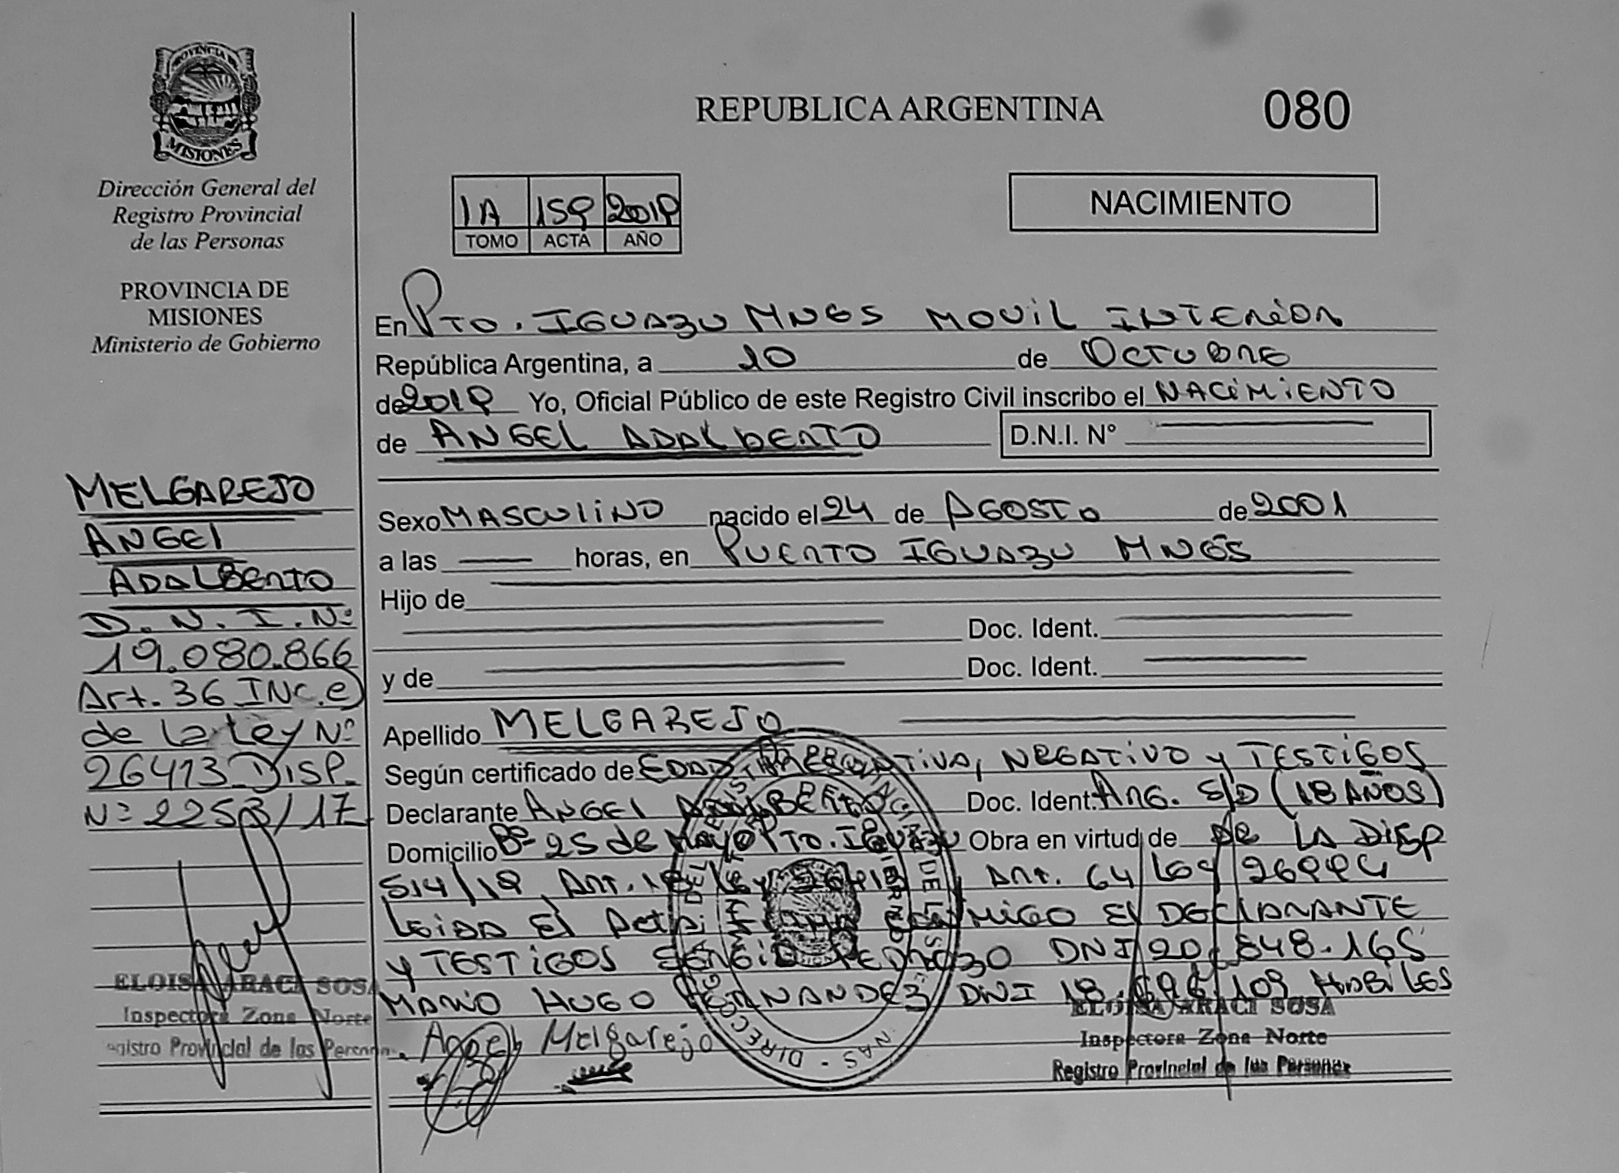 PROVINCIA DE
MISIONES
Dirección General del
Registro Provincial
de las Personas
PROVINCIA DE
MISIONES
Ministerio de Gobierno
MELGAREJO
ANGEL
ADALBERTO
D.N.I.Nº
19.080.866
Art. 36 INC.e)
de la Ley Nº
26413 DISP.
Nº 2253/17
ELOISA ARACI SOSA
Inspectora Zona Norte
Registro Provincial de las Personas
REPUBLICA ARGENTINA
080
1A 159 2019
TOMO ACTA AÑO
NACIMIENTO
En PTO. IGUAZU MNES MOVIL INTERIOR
República Argentina, a 10 de OCTUBRE
de 2019 Yo, Oficial Público de este Registro Civil inscribo el NACIMIENTO
de ANGEL ADALBERTO D.N.I. N°
Sexo MASCULINO nacido el 24 de AGOSTO de 2001
a las horas, en PUERTO IGUAZU MNES
Hijo de
Doc. Ident.
y de Doc. Ident.
Apellido MELGAREJO
Según certificado de EDAD PRESUNTIVA, NEGATIVO y TESTIGOS
Declarante ANGEL ADALBERTO Doc. Ident. ARG. S/D (18 AÑOS)
Domicilio Bº 25 de MAYO PTO. IGUAZU Obra en virtud de DE LA DISP
514/19, ART. Ley ART. 64 Ley 26994
Leida El Acta EL DECLARANTE
y TESTIGOS SERGIO PEDROZO DNI 20.848.165
MARIO HUGO FERNANDEZ DNI 18. 109 HABILES
Angel Melgarejo
ELOISA ARACI SOSA
Inspectora Zona Norte
Registro Provincial de las Personas